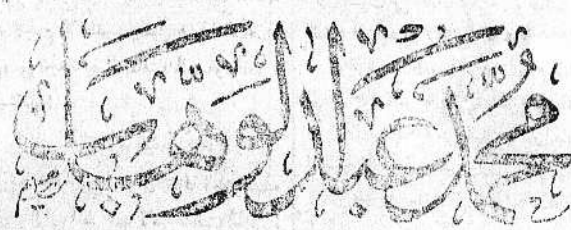 محمد عبد الوهاب